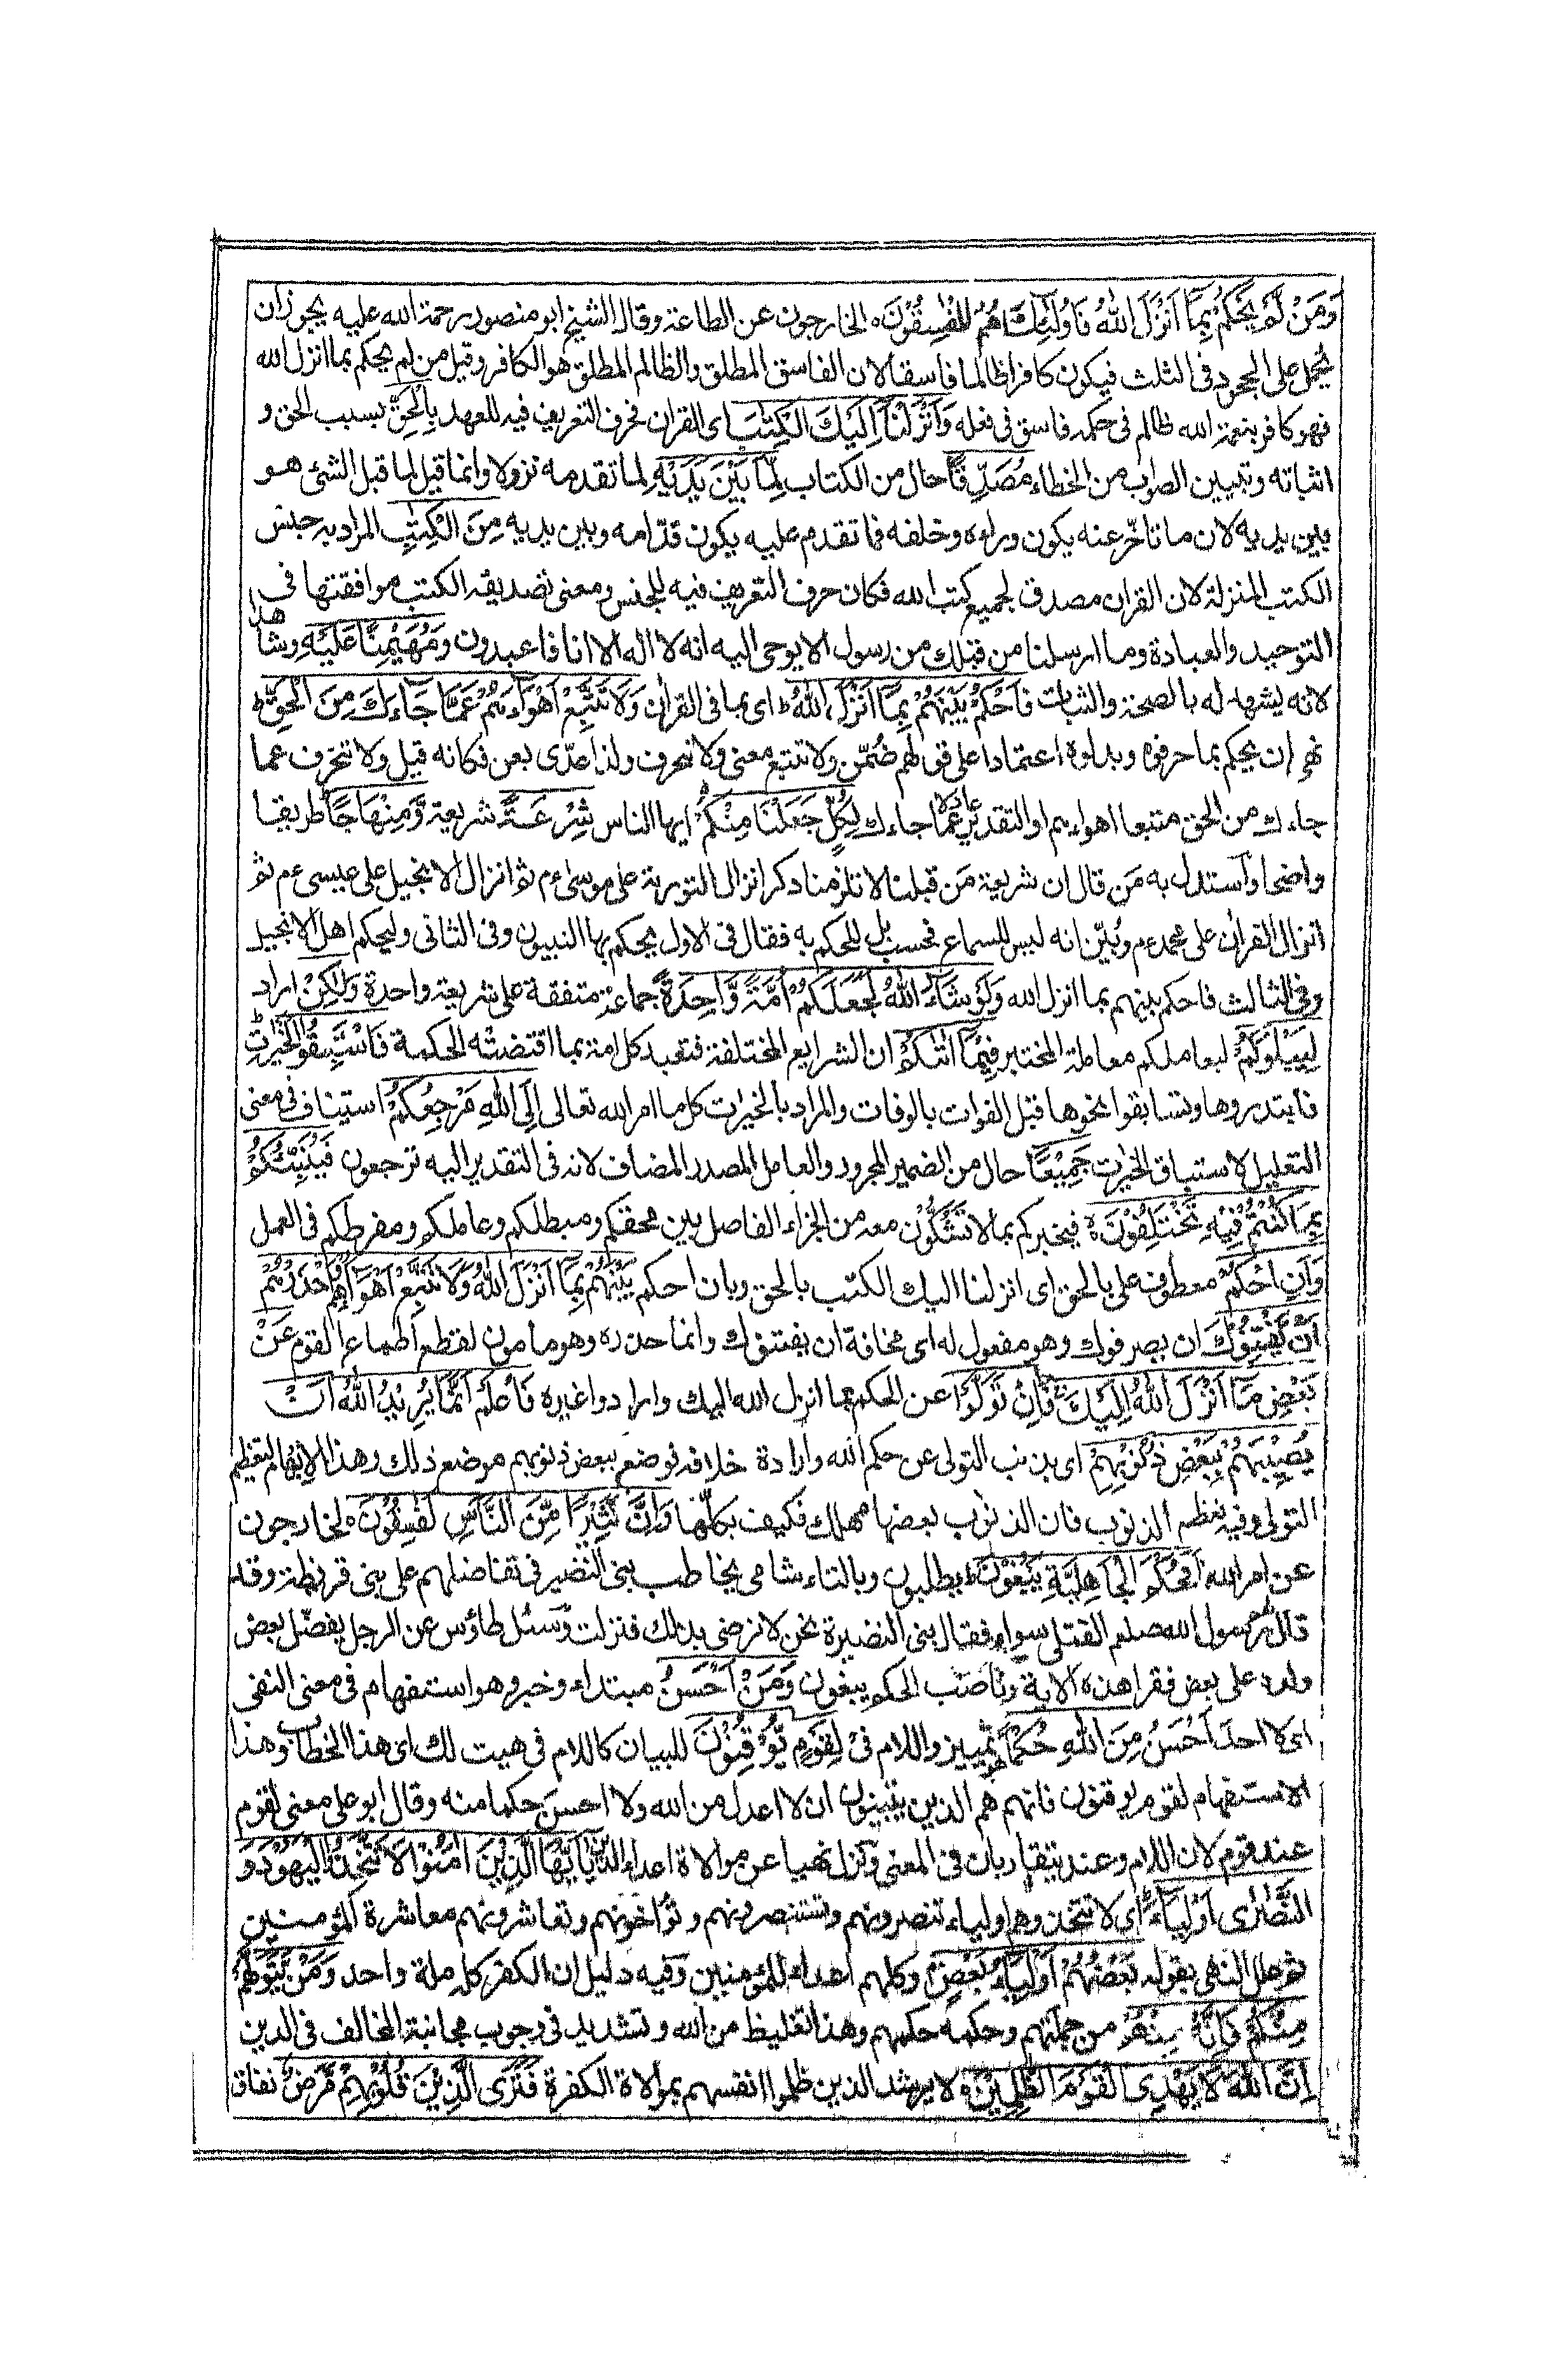 وَمَنْ لَّمْ يَحْكُمْ بِمَا اَنْزَلَ اللّٰهُ فَاُولٰٓئِكَ هُمُ الْفٰسِقُوْنَ ه الخارجون عن الطاعة وقال الشيخ ابو منصور رحمة الله عليه يجوز ان
يحمل على الجحود فى الثلث فيكون كافرا ظالما فاسقا لان الفاسق المطلق والظالم المطلق هو الكافر وقيل من لم يحكم بما انزل الله
فهو كافر بنعمة الله ظالم فى حكمه فاسق فى فعله وَاَنْزَلْنَآ اِلَيْكَ الْكِتٰبَ اى القران فحرف التعريف فيه للعهد بِالْحَقِّ بسبب الحق و
اثباته وتبيين الصواب من الخطاء مُصَدِّقًا حال من الكتاب لِّمَا بَيْنَ يَدَيْهِ لما تقدمه نزولا وانما قيل لما قبل الشئ هو
بين يديه لان ما تاخّر عنه يكون وراءه وخلفه فما تقدم عليه يكون قدّامه وبين يديه مِنَ الْكِتٰبِ المراد به جنس
الكتب المنزلة لان القران مصدق لجميع كتب الله فكان حرف التعريف فيه للجنس ومعنى تصديقه الكتب موافقتها فى
التوحيد والعبادة وما ارسلنا من قبلك من رسول الا يوحى اليه انه لا اله الا انا فاعبدون وَمُهَيْمِنًا عَلَيْهِ وشاهدا
لانه يشهد له بالصحة والثبات فَاحْكُمْ بَيْنَهُمْ بِمَآ اَنْزَلَ اللّٰهُ ط اى بما فى القران وَلَا تَتَّبِعْ اَهْوَآءَهُمْ عَمَّا جَآءَكَ مِنَ الْحَقِّ ط
نهى ان يحكم بما حرفوه وبدلوه اعتمادا على قولهم ضُمّن ولا تتبع معنى ولا تنحرف ولذا عدّى بعن فكانه قيل ولا تنحرف عما
جاءك من الحق متبعا اهواءهم او التقدير عادلا عمّا جاءك لِكُلٍّ جَعَلْنَا مِنْكُمْ ايها الناس شِرْعَةً شريعة وَّمِنْهَاجًا طريقا
واضحا واستدل به مَن قال ان شريعة مَن قبلنا لا تلزمنا ذكر انزال التورية على موسىٰ ءم ثم انزال الانجيل على عيسى ءم ثم
انزال القراٰن على محمد ءم وبيّن انه ليس للسماع فحسب بل للحكم به فقال فى الاول يحكم بها النبيون وفى الثانى وليحكم اهل الانجيل
وفى الثالث فاحكم بينهم بما انزل الله وَلَوْ شَآءَ اللّٰهُ لَجَعَلَكُمْ اُمَّةً وَّاحِدَةً جماعة متفقة على شريعة واحدة وَلٰكِنْ اراد
لِيَبْلُوَكُمْ ليعاملكم معاملة المختبر فِيْمَآ اٰتٰىكُمْ ان الشرايع المختلفة فتعبد كل امة بما اقتضته الحكمة فَاسْتَبِقُوا الْخَيْرٰتِ ط
فابتدروها وتسابقوا نحوها قبل الفوات بالوفات والمراد بالخيرات كل ما امر الله تعالى اِلَى اللّٰهِ مَرْجِعُكُمْ استيناف فى معنى
التعليل لاستباق الخيرات جَمِيْعًا حال من الضمير المجرور والعامل المصدر المضاف لانه فى التقدير اليه ترجعون فَيُنَبِّئُكُمْ
بِمَا كُنْتُمْ فِيْهِ تَخْتَلِفُوْنَ ه فيخبركم بما لا تَشُكُّوْن معه من الجزاء الفاصل بين محقكم ومبطلكم وعاملكم ومفرطكم فى العمل
وَاَنِ احْكُمْ معطوف على بالحق اى انزلنا اليك الكتب بالحق وبان احكم بَيْنَهُمْ بِمَآ اَنْزَلَ اللّٰهُ وَلَا تَتَّبِعْ اَهْوَآءَهُمْ وَاحْذَرْهُمْ
اَنْ يَّفْتِنُوْكَ ان يصرفوك وهو مفعول له اى مخافة ان يفتنوك وانما حذره وهو مامون لقطع اطماع القوم عَنْ
بَعْضِ مَآ اَنْزَلَ اللّٰهُ اِلَيْكَ ط فَاِنْ تَوَلَّوْا عن الحكم بما انزل الله اليك وارادوا غيره فَاعْلَمْ اَنَّمَا يُرِيْدُ اللّٰهُ اَنْ
يُّصِيْبَهُمْ بِبَعْضِ ذُنُوْبِهِمْ اى بذنب التولى عن حكم الله وارادة خلافه فوضع ببعض ذنوبهم موضع ذلك وهذا الابهام لتعظيم
التولى وفيه تعظم الذنوب فان الذنوب بعضها مهلك فكيف بكلّها وَاِنَّ كَثِيْرًا مِّنَ النَّاسِ لَفٰسِقُوْنَ ه لخارجون
عن امر الله اَفَحُكْمَ الْجَاهِلِيَّةِ يَبْغُوْنَ ط يطلبون وبالتاء شامى يخاطب بنى النضير فى تفاضلهم على بنى قريظة وقد
قال رسول الله صلعم القتلى سواء فقال بنى النضيرة نحن لا نرضى بذلك فنزلت وسئل طاؤس عن الرجل يفضّل بعض
ولده على بعض فقرا هذه الاية وناصب الحكم يبغون وَمَنْ اَحْسَنُ مبتداء وخبر وهو استفهام فى معنى النفى
اى لا احدَ اَحْسَنُ مِنَ اللّٰهِ حُكْمًا هو تمييز واللام فى لِقَوْمٍ يُّوْقِنُوْنَ للبيان كاللام فى هيت لك اى هذا الخطاب وهذا
الاستفهام لقوم يوقنون فانهم هم الذين يتبينون ان لا اعدل من الله ولا احسن حكما منه وقال ابو على معنى لقوم
عند قوم لان اللام وعند يتقاربان فى المعنى ونزل نهيا عن موالاة اعداء الدين يٰٓاَيُّهَا الَّذِيْنَ اٰمَنُوْا لَا تَتَّخِذُوا الْيَهُوْدَ وَ
النَّصٰرٰى اَوْلِيَآءَ اى لا تتخذوهم اولياء تنصرونهم وتستنصرونهم وتؤاخونهم وتعاشرونهم معاشرة المؤمنين
ثم علل النهى بقوله بَعْضُهُمْ اَوْلِيَآءُ بَعْضٍ ط وكلهم اعداء للمؤمنين وفيه دليل ان الكفر كله ملة واحد وَمَنْ يَّتَوَلَّهُمْ
مِّنْكُمْ فَاِنَّهٗ مِنْهُمْ من جملتهم وحكمه حكمهم وهذا تغليظ من الله وتشديد فى وجوب مجانبة المخالف فى الدين
اِنَّ اللّٰهَ لَا يَهْدِى الْقَوْمَ الظّٰلِمِيْنَ ه لا يرشد الذين ظلموا انفسهم بموالاة الكفرة فَتَرَى الَّذِيْنَ فِىْ قُلُوْبِهِمْ مَّرَضٌ نفاق